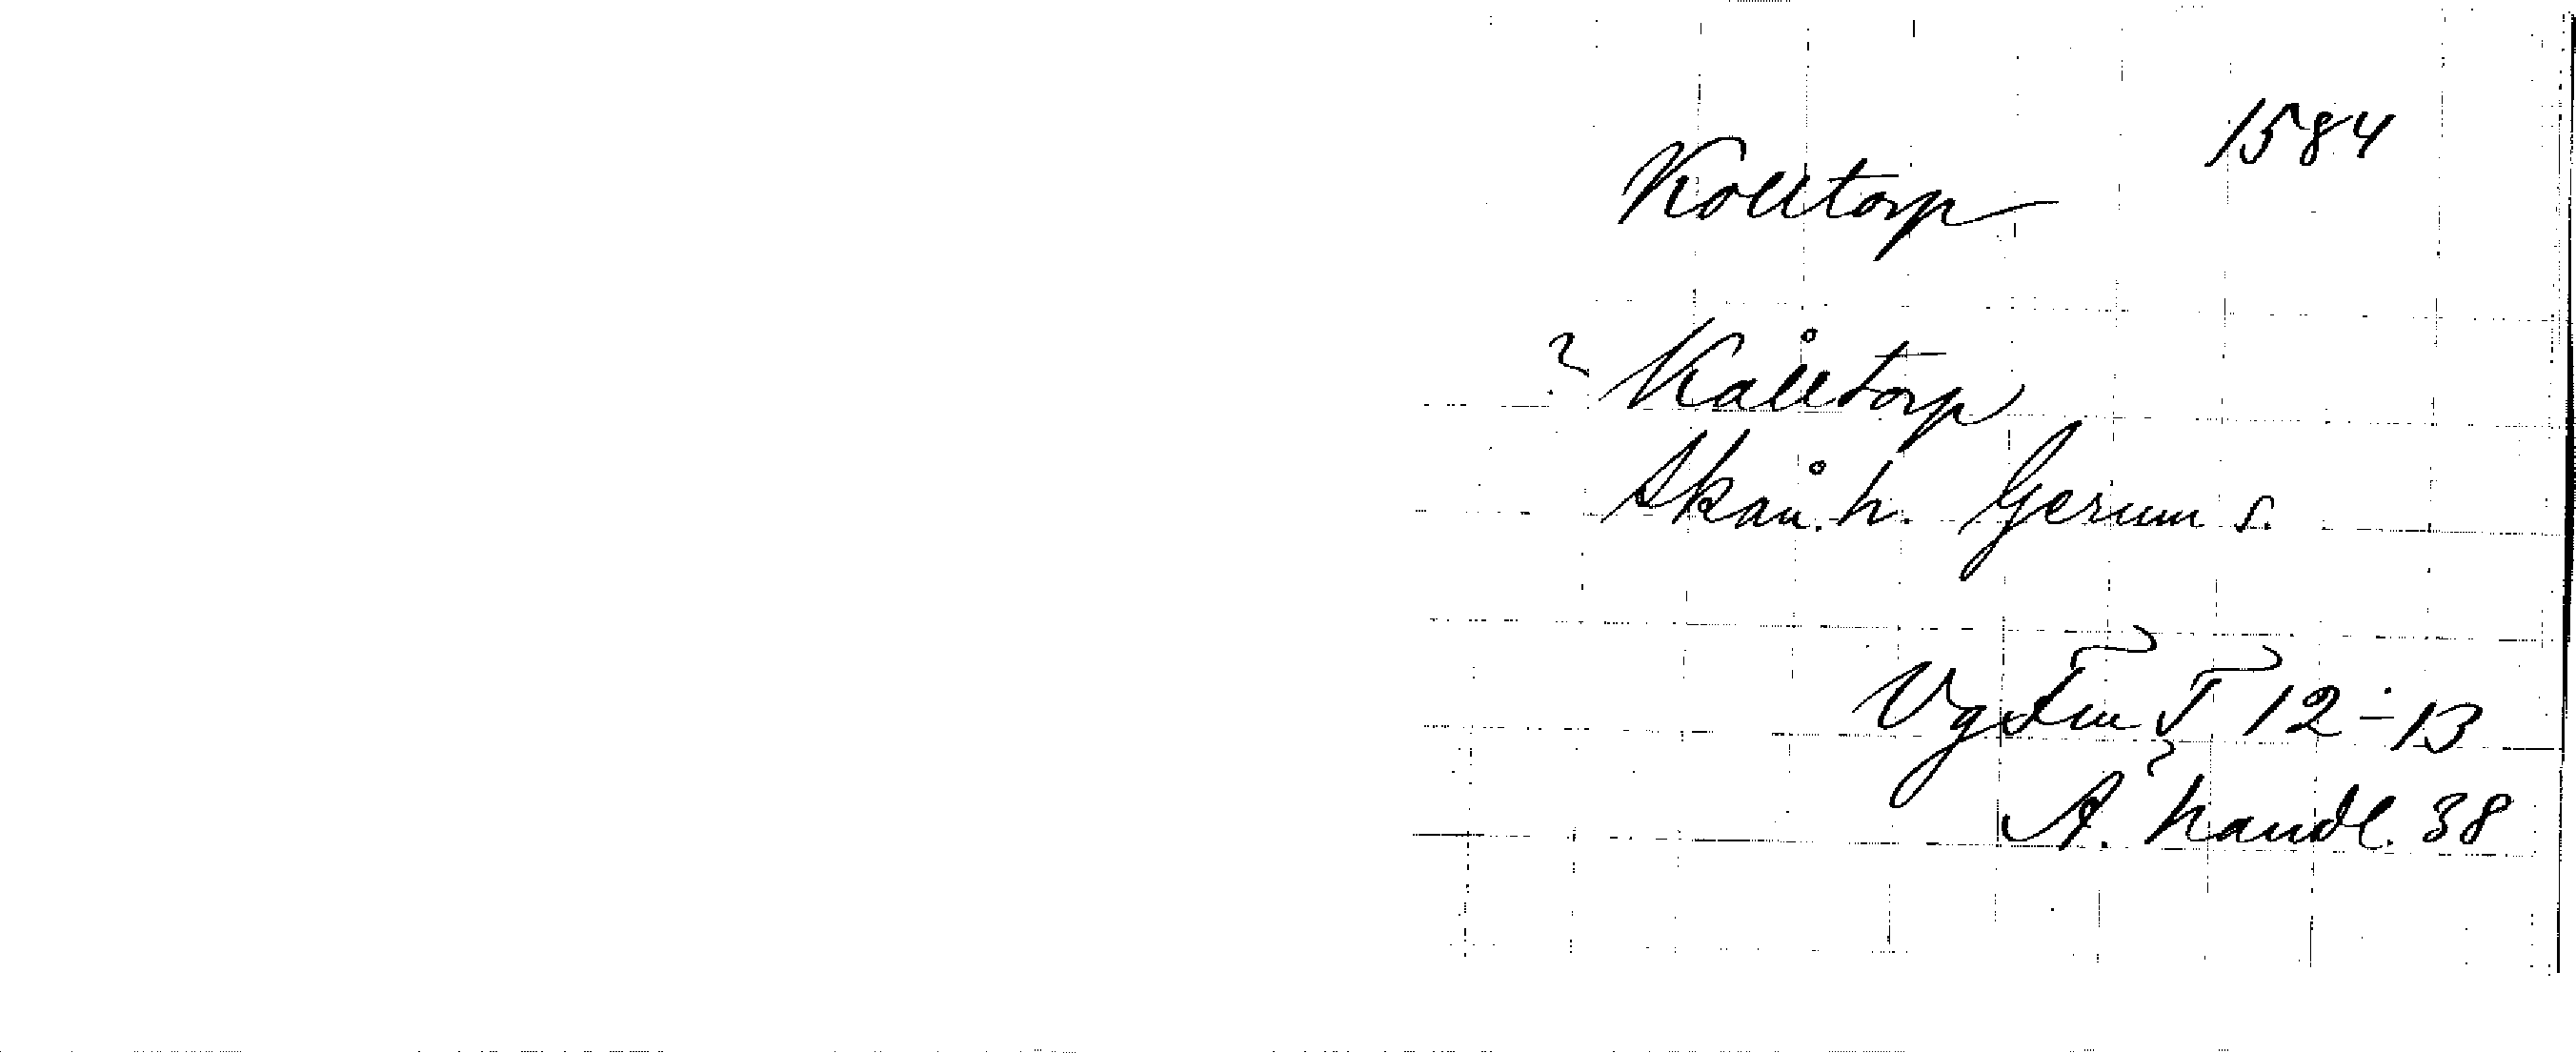 1584
Kolltorp
? Kålltorp
Skån. h. Gerum s.
Vg Fm T 12-13
A. handl. 38